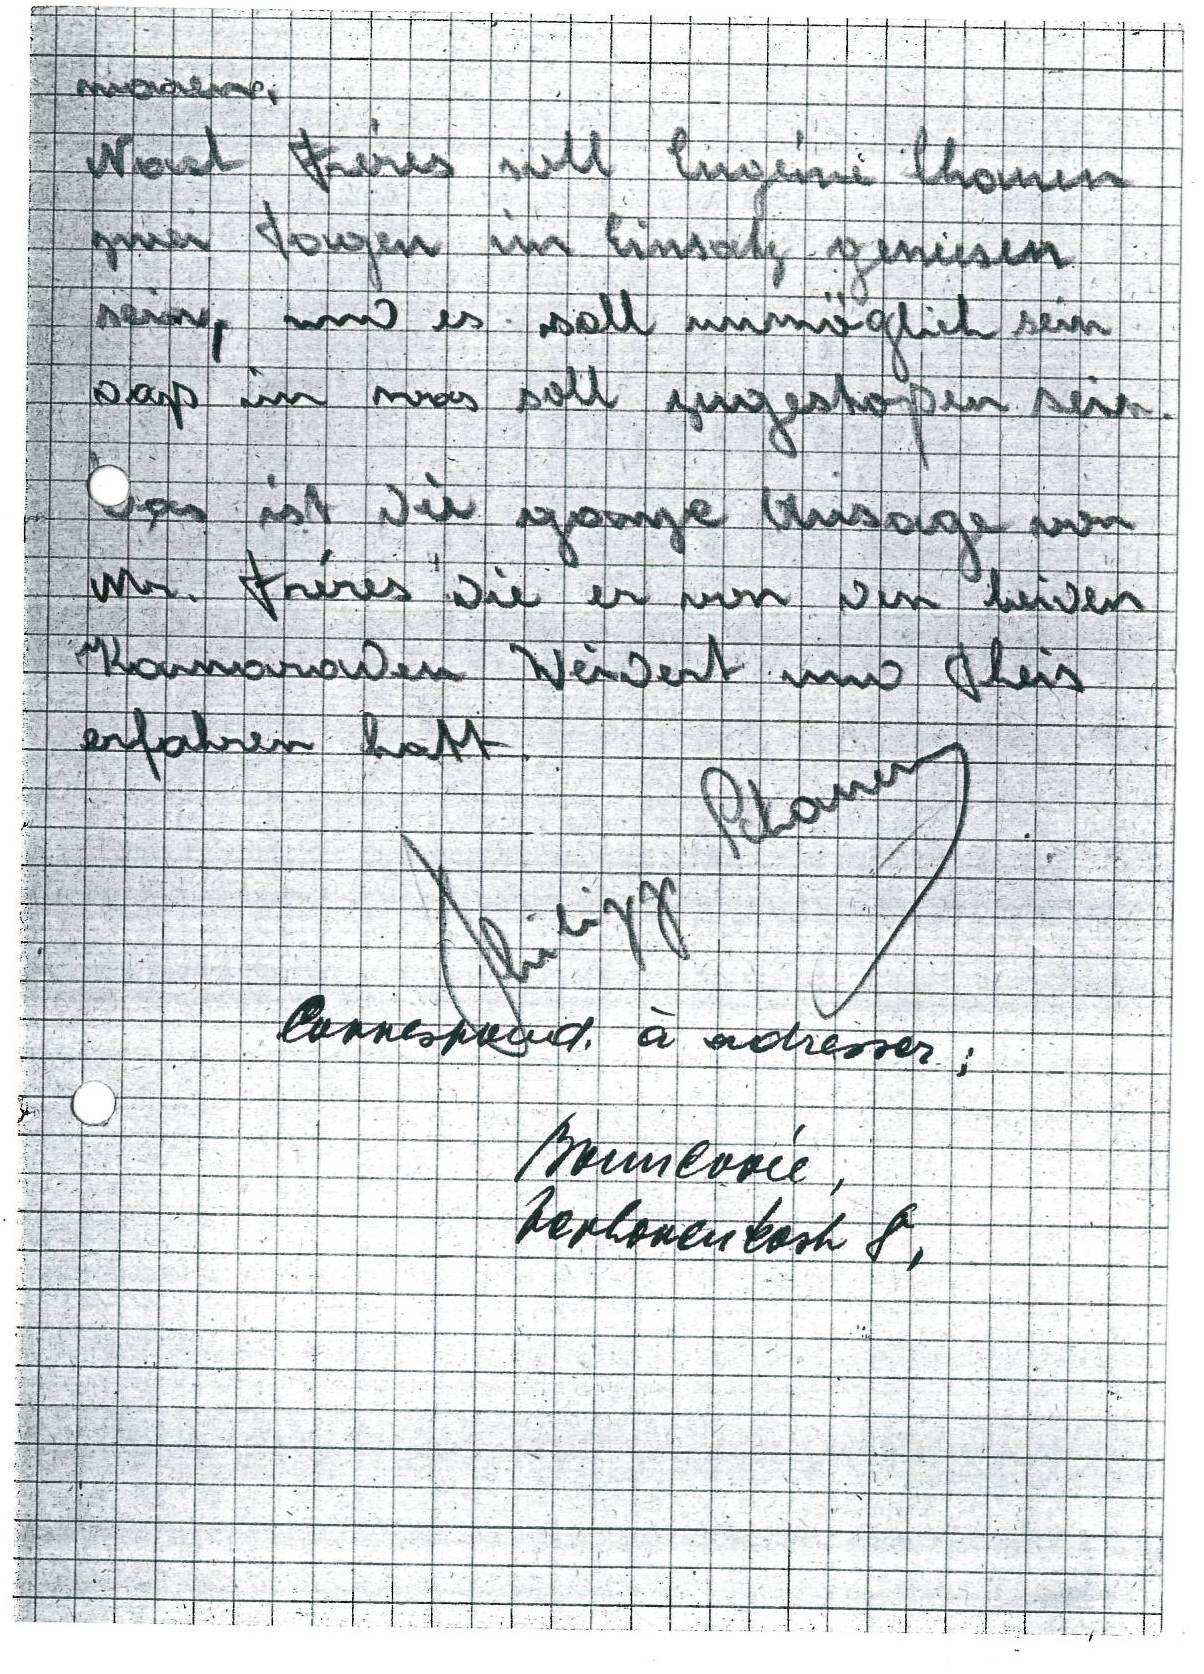 waren.
Nach Fréres soll Eugéine Thomen
zwei Tagen im Einsatz gewesen
sein, und es soll unmöglich sein
das im was soll zugestosen sein.
Das ist die ganze Aussage von
Mr. Fréres die er von den beiden
Kamaraden Weidert und Theis
erfahren hatt.
Philipp
Correspond. à adresser: